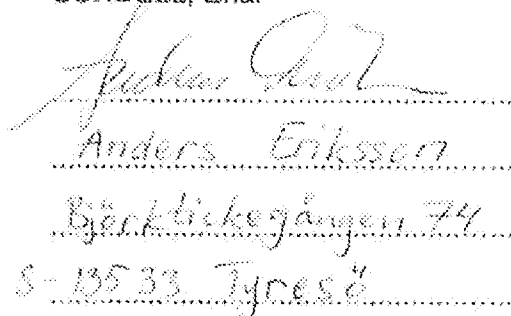 Anders Eriksson
Björktickegången 74
S-135 33 Tyresö